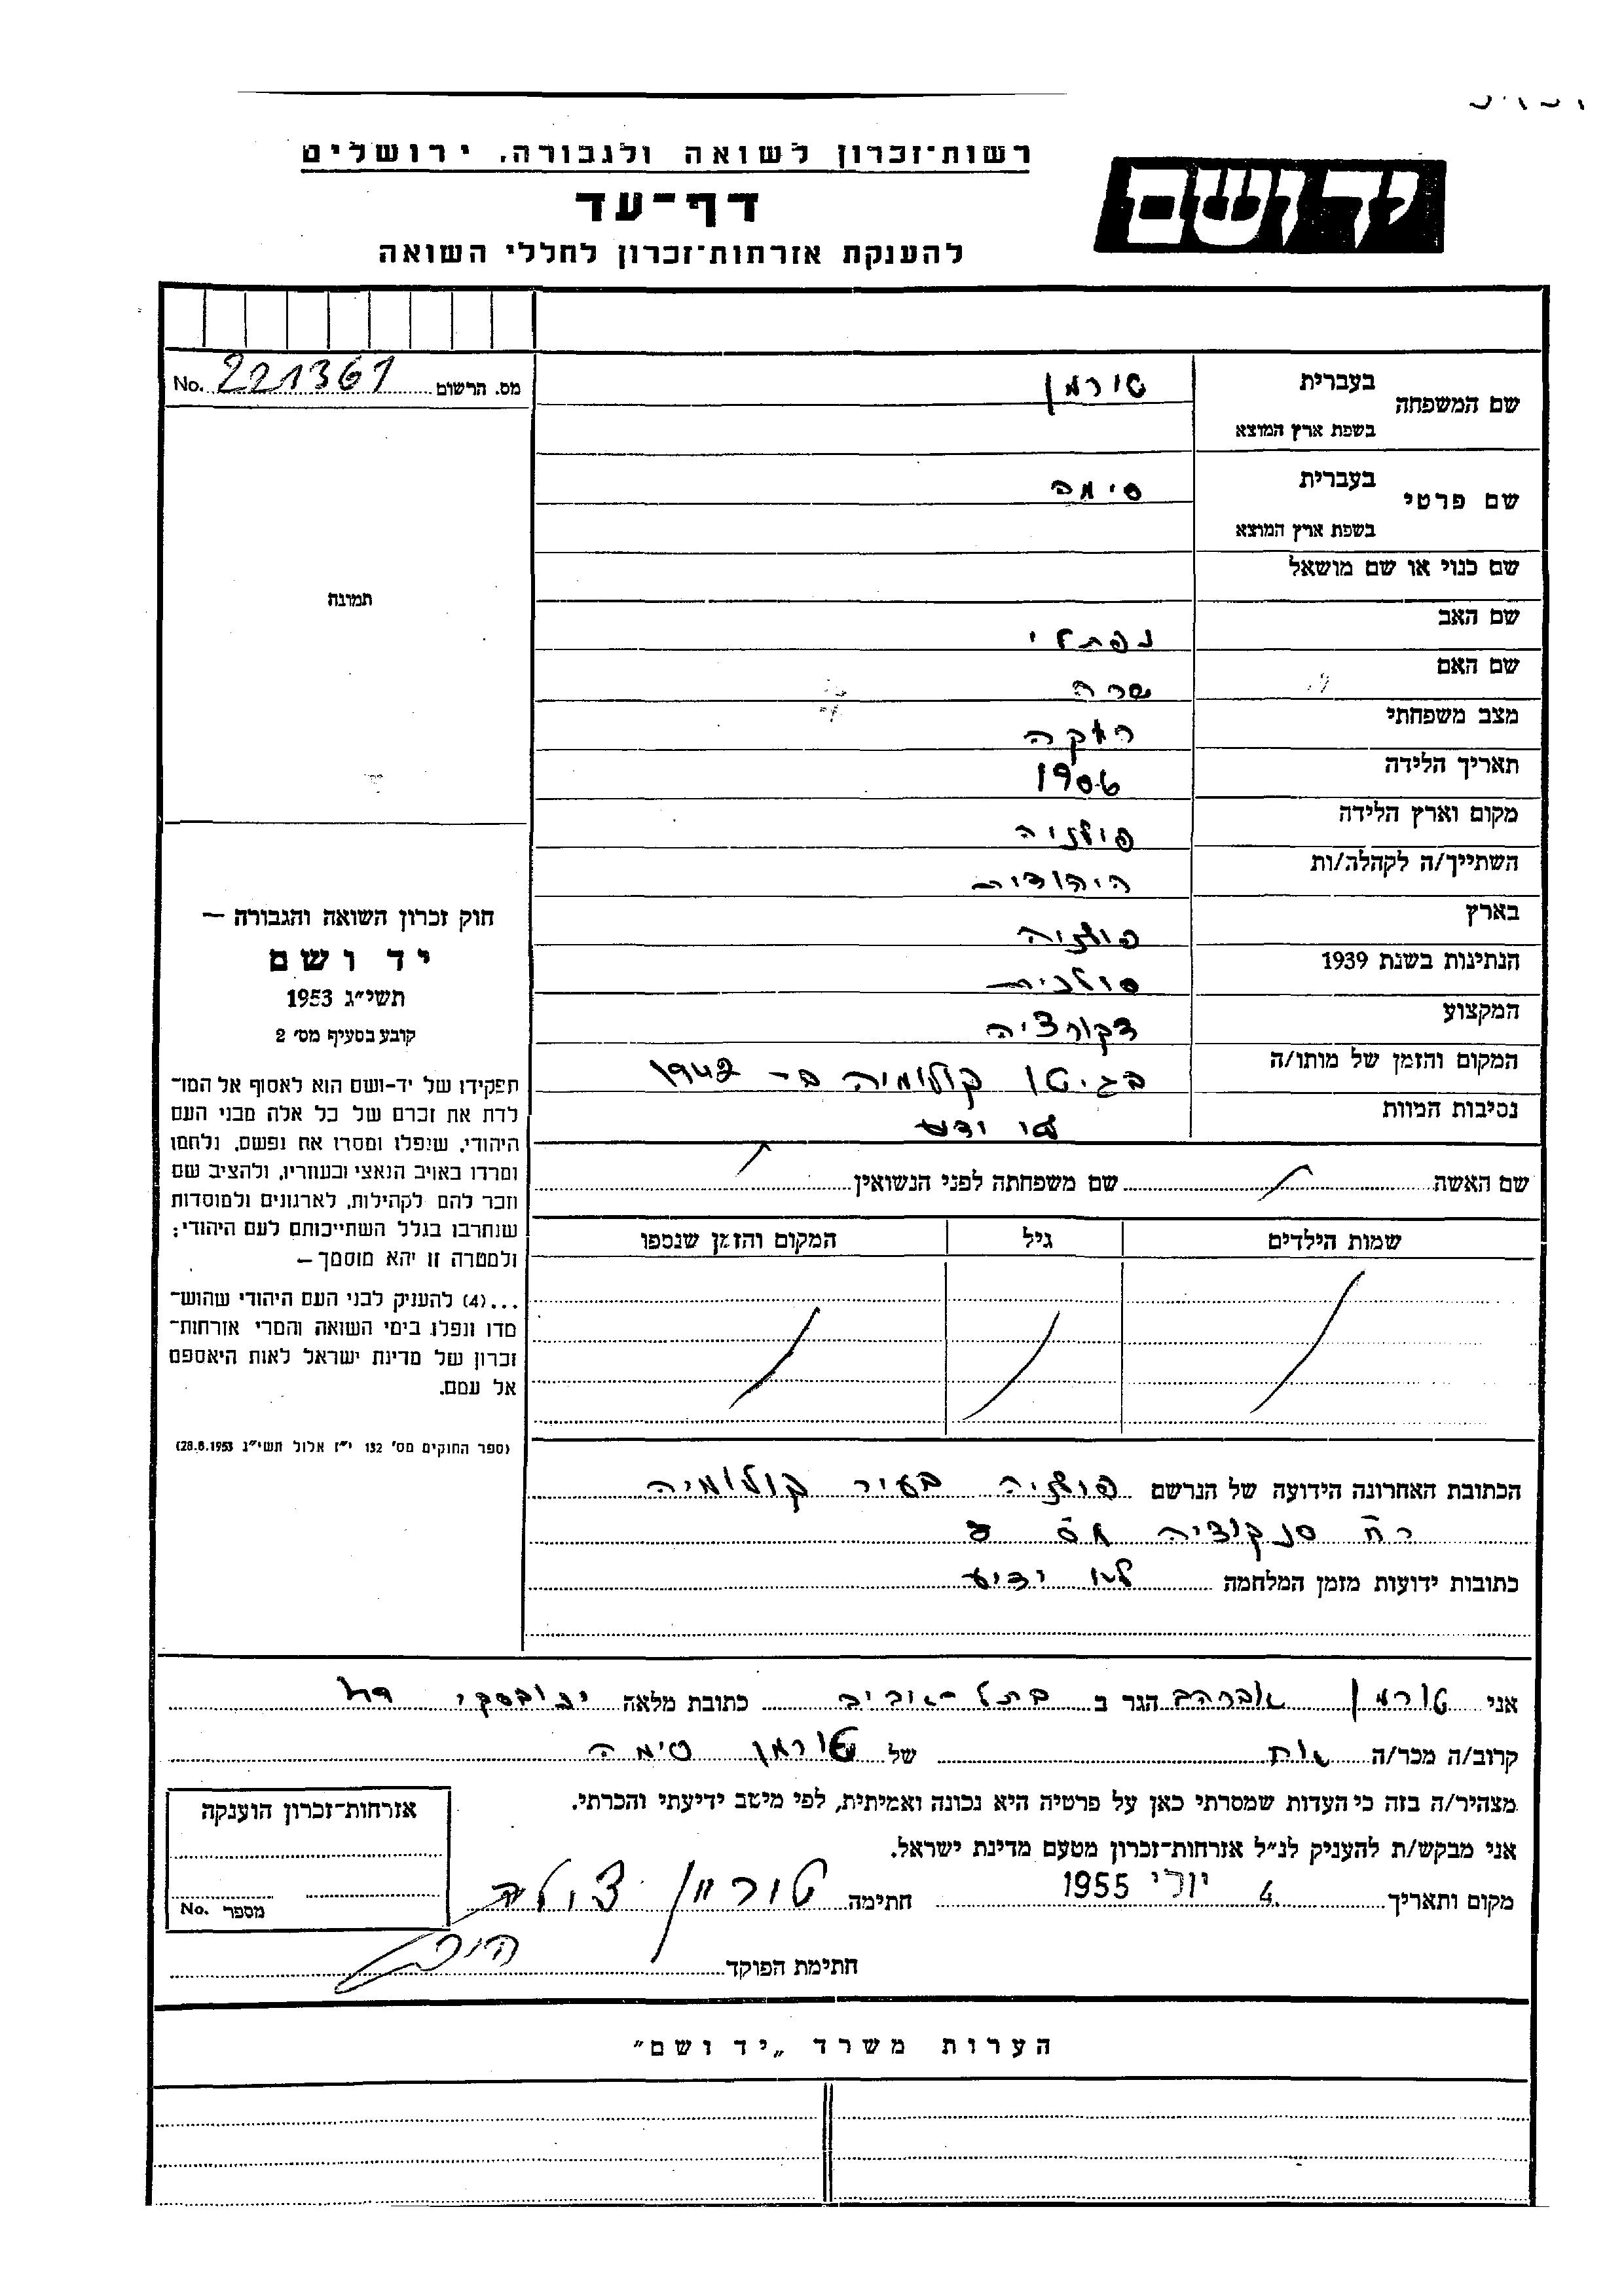 רשות־זכרון לשואה ולגבורה, ירושלים
יד ושם
דף־עד
להענקת אזרחות־זכרון לחללי השואה
מס. הרשום 221361 No.
שם המשפחה
בעברית טורמן
בשפת ארץ המוצא
שם פרטי
בעברית סימה
בשפת ארץ המוצא
שם כנוי או שם מושאל
שם האב נפתלי
שם האם שרה
מצב משפחתי רוקה
תאריך הלידה 1906
מקום וארץ הלידה פולניה
השתייך/ה לקהלה/ות היהודית
בארץ פולניה
הנתינות בשנת 1939 פולנית
המקצוע דקורציה
המקום והזמן של מותו/ה בגיטו קולומיה ב- 1942
נסיבות המוות לו ידוע
שם האשה שם משפחתה לפני הנשואין
שמות הילדים גיל המקום והזמן שנספו
תמונה
חוק זכרון השואה והגבורה —
יד ושם
תשי״ג 1953
קובע בסעיף מס׳ 2
תפקידו של יד-ושם הוא לאסוף אל המו־
לדת את זכרם של כל אלה מבני העם
היהודי, שנפלו ומסרו את נפשם, נלחמו
ומרדו באויב הנאצי ובעוזריו, ולהציב שם
וזכר להם לקהילות, לארגונים ולמוסדות
שנחרבו בגלל השתייכותם לעם היהודי;
ולמטרה זו יהא מוסמך —
...(4) להעניק לבני העם היהודי שהוש־
מדו ונפלו בימי השואה והמרי אזרחות־
זכרון של מדינת ישראל לאות היאספם
אל עמם.
(ספר החוקים מס׳ 132 י״ז אלול תשי״ג 28.8.1953)
הכתובת האחרונה הידועה של הנרשם פולניה בעיר קולומיה
רח סנקוציה מס 8
כתובות ידועות מזמן המלחמה לו ידוע
אני טורמן אברהם הגר ב בתל-אוביב כתובת מלאה
קרוב/ה מכר/ה אות של טורמן סימה
מצהיר/ה בזה כי העדות שמסרתי כאן על פרטיה היא נכונה ואמיתית, לפי מיטב ידיעתי והכרתי.
אני מבקש/ת להעניק לנ״ל אזרחות־זכרון מטעם מדינת ישראל.
מקום ותאריך 4. יולי 1955 חתימה טורמן
חתימת הפוקד
אזרחות־זכרון הוענקה
מספר No.
הערות משרד „יד ושם״